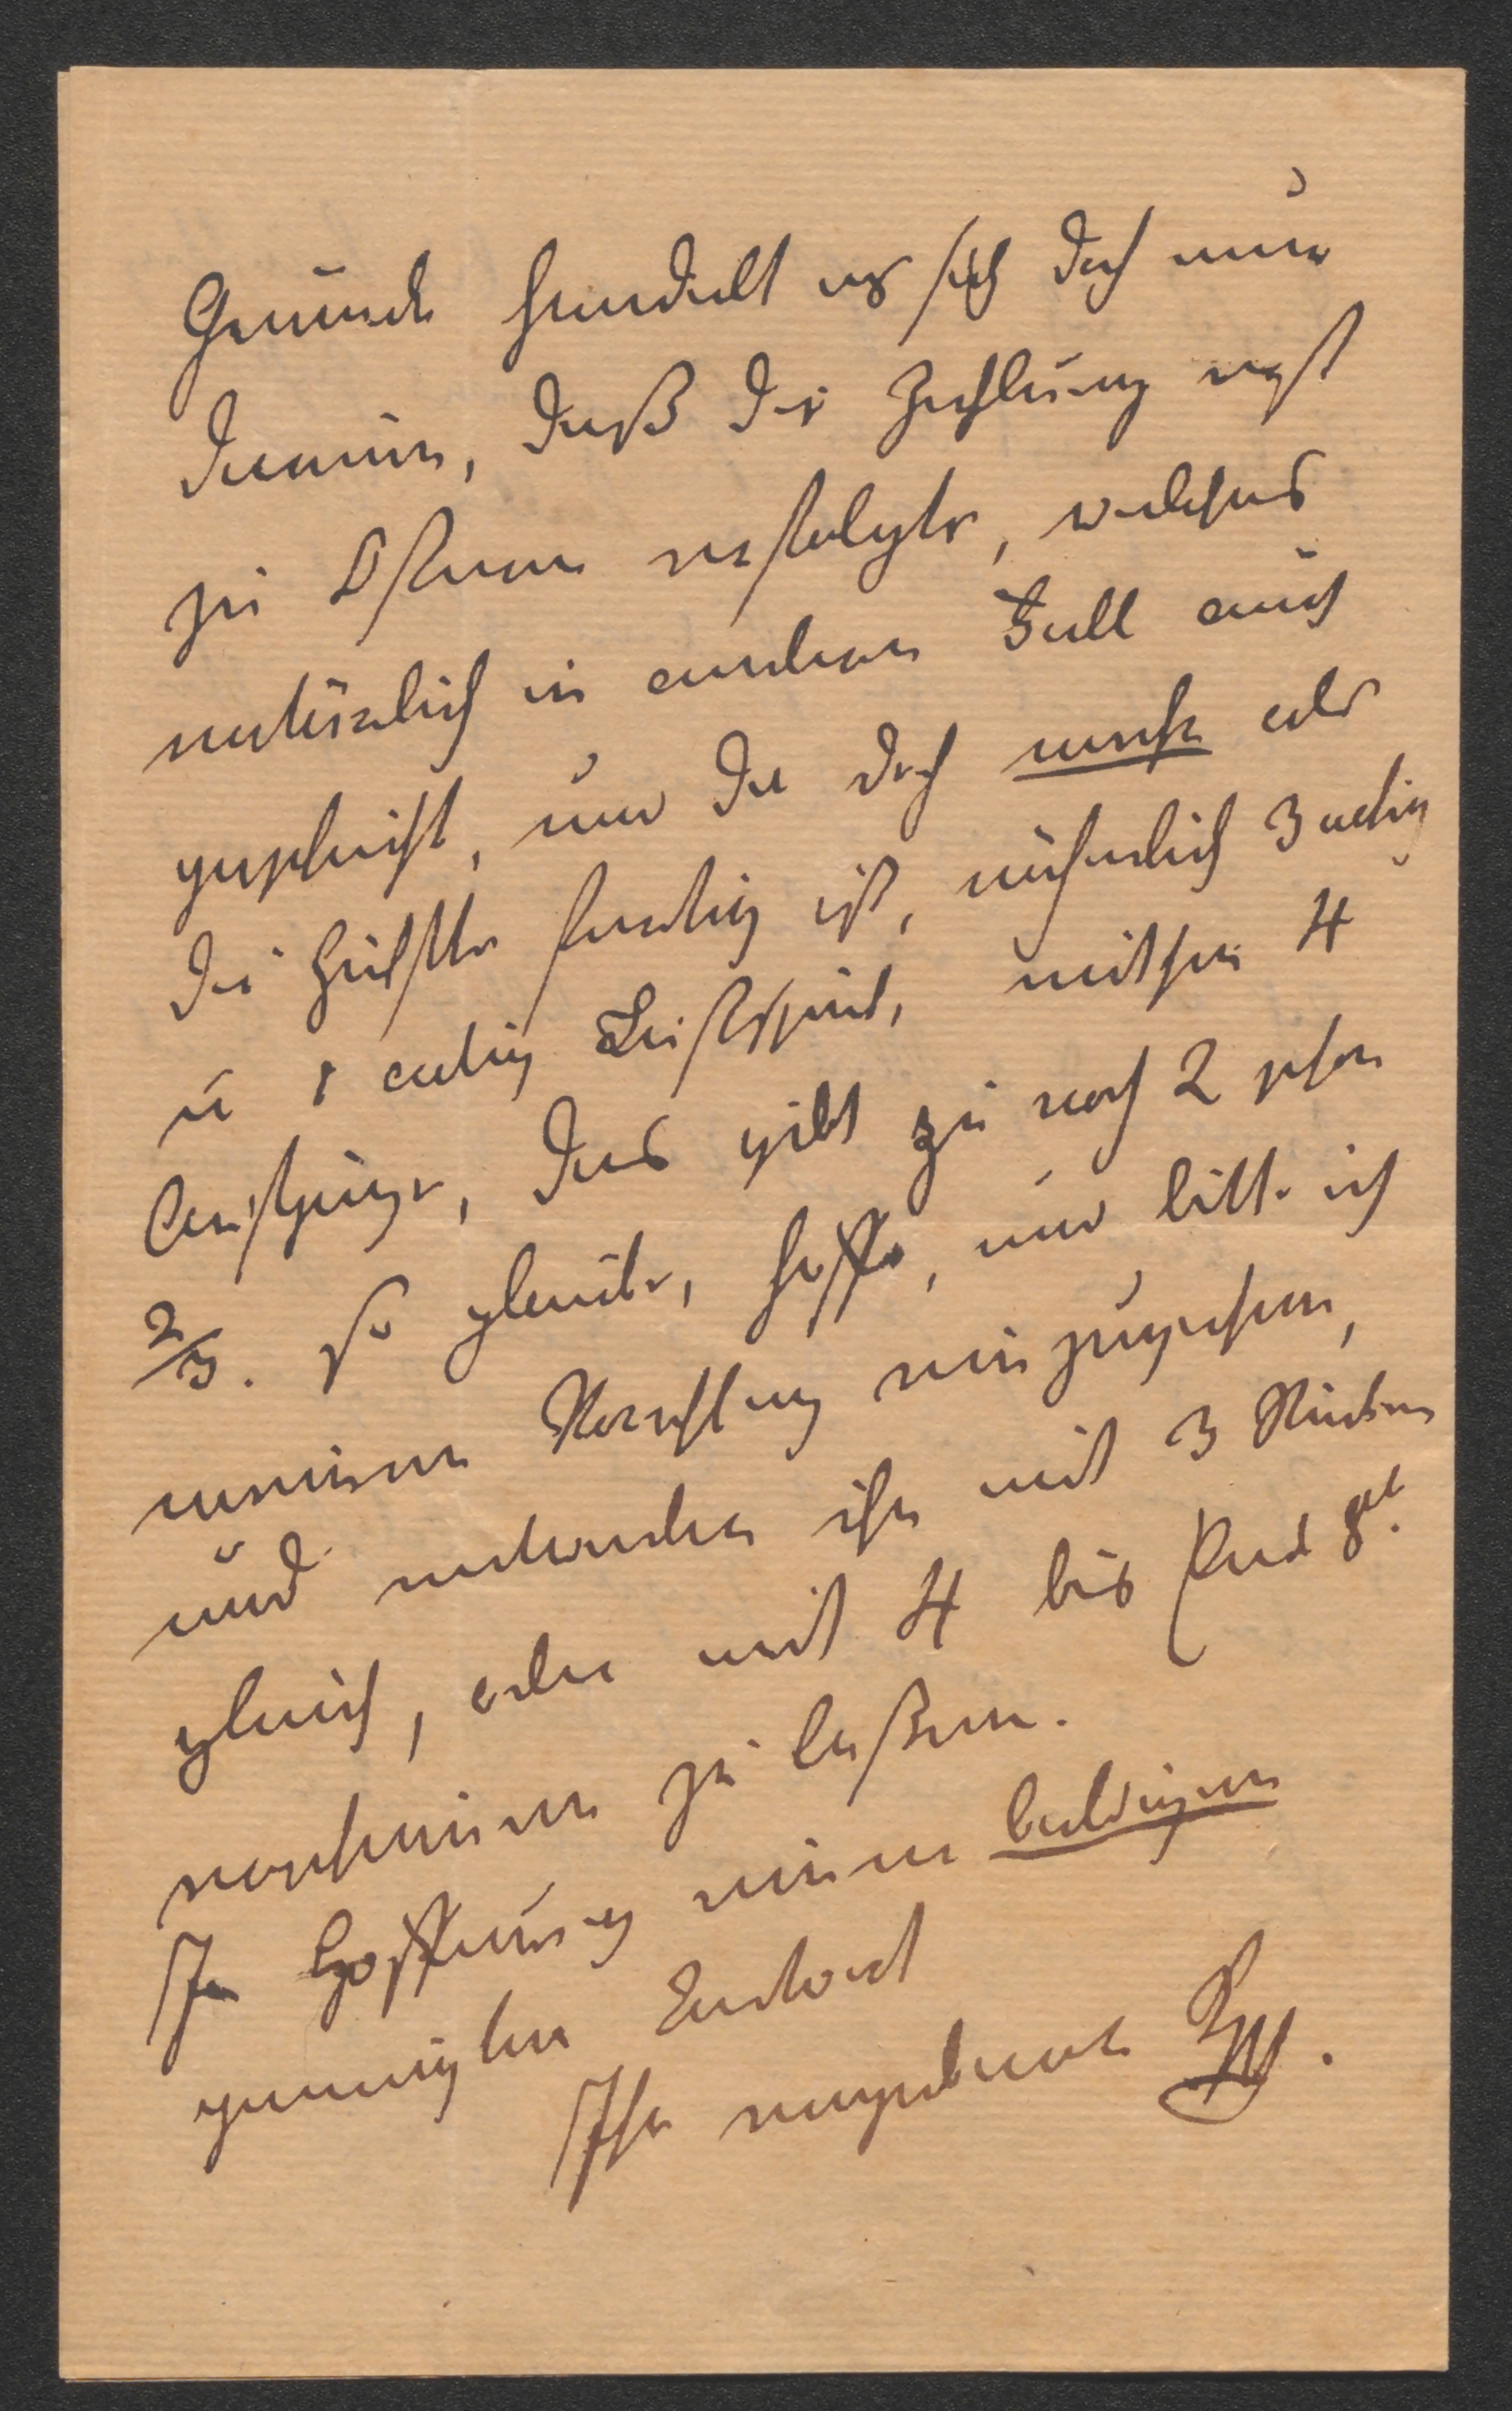 Grunde handelt es sich doch nur
darum, daß die Zahlung erst
zu Ostern erfolgte, welches
natürlich in anderem Fall auch
geschieht, nur da doch mehr als
die Hälfte fertig ist, nähmlich 3 aktig
u 1 aktig Lustspiel, mithin 4
Aufzüge, das gibt zu noch 2 schon
2/3. So glaube, hoffe, und bitte ich
meinem Vorschlag einzugehen,
und entweder ihn mit 3 Stücken
gleich, oder mit 4 bis
erscheinen zu laßen.
In Hoffnung einer baldigen
geneigten Antwort
Ihr ergebener